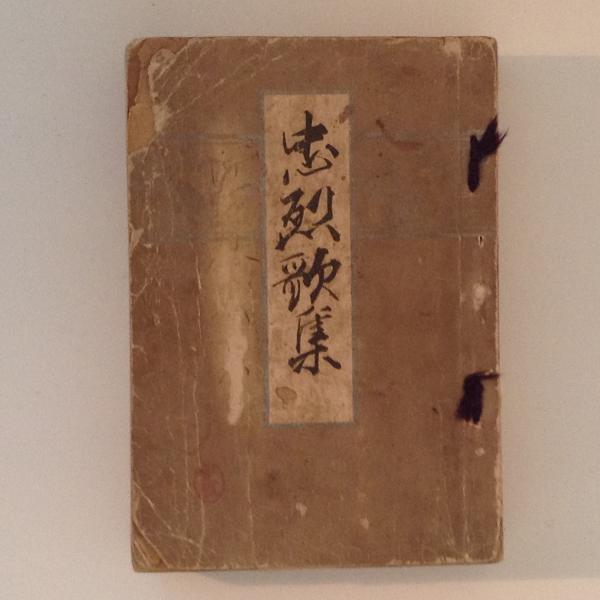 忠烈歌集